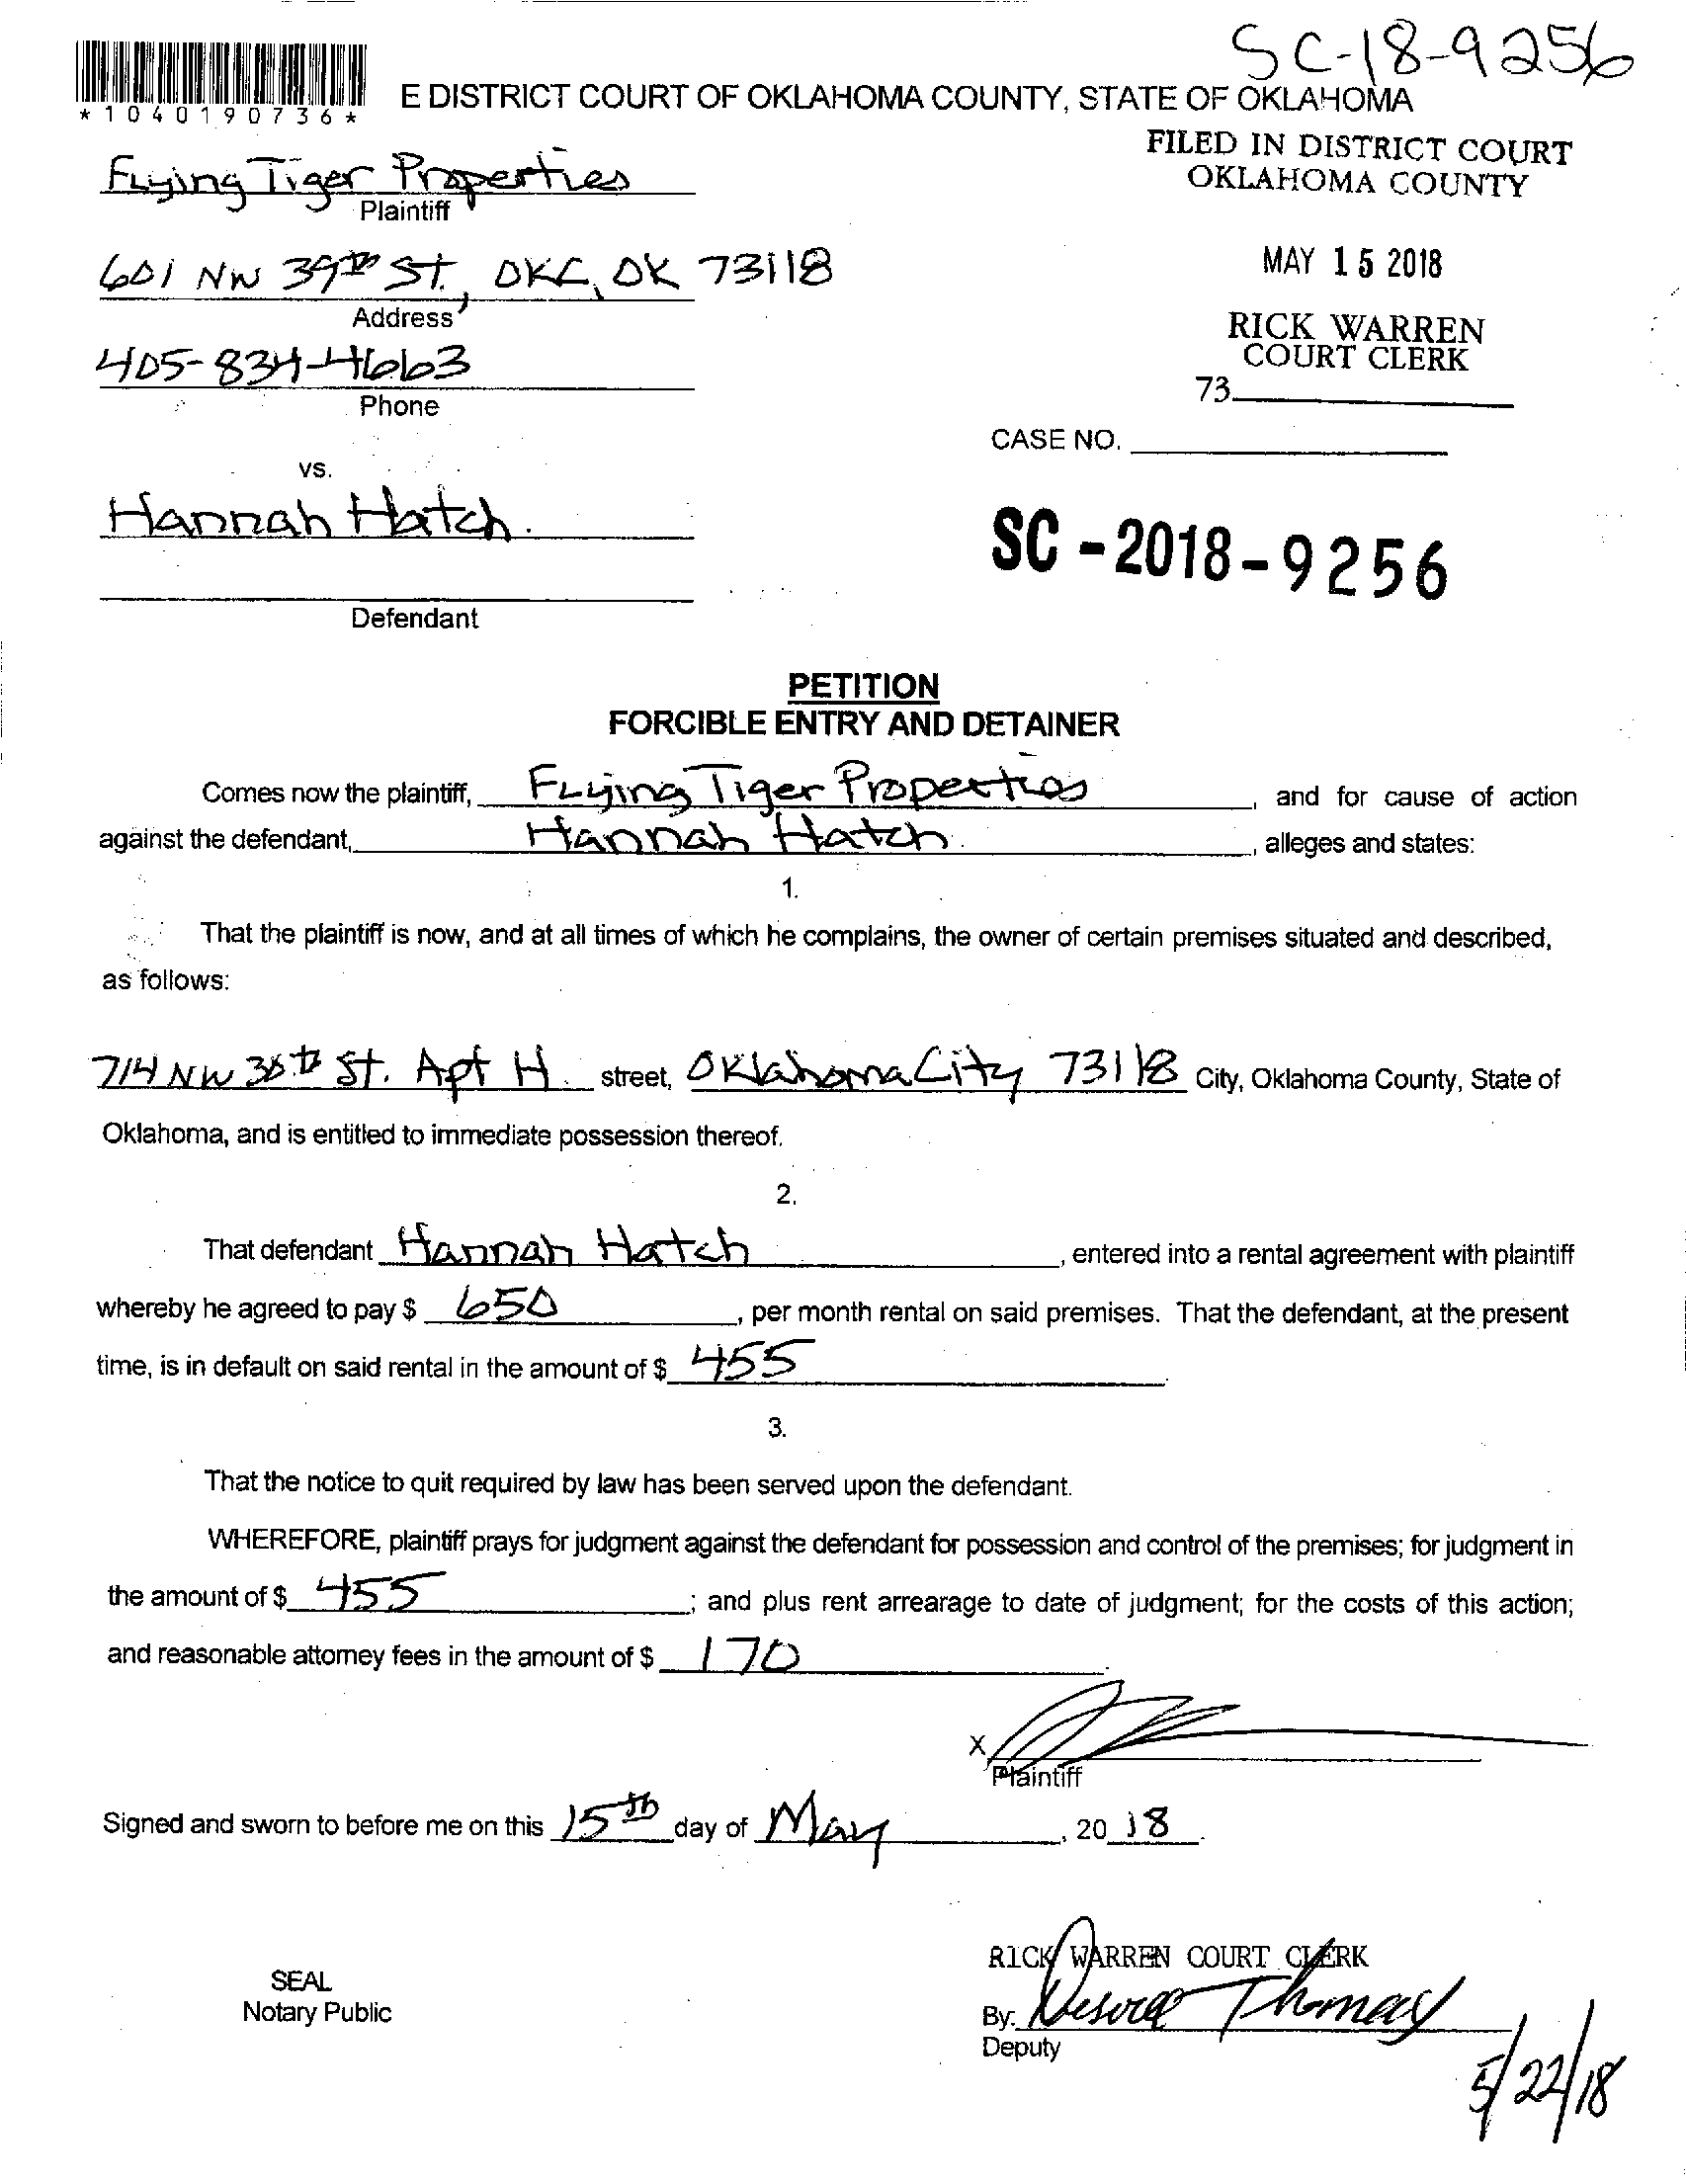 SC-18-9256
*1040190736*
E DISTRICT COURT OF OKLAHOMA COUNTY, STATE OF OKLAHOMA
FILED IN DISTRICT COURT
OKLAHOMA COUNTY
Flying Tiger Properties
Plaintiff
601 NW 39th St., OKC, OK 73118
Address
MAY 15 2018
RICK WARREN
COURT CLERK
405-834-4663
Phone
73
CASE NO.
vs.
Hannah Hatch
SC-2018-9256
Defendant
PETITION
FORCIBLE ENTRY AND DETAINER
Comes now the plaintiff, Flying Tiger Properties, and for cause of action
against the defendant, Hannah Hatch, alleges and states:
1.
That the plaintiff is now, and at all times of which he complains, the owner of certain premises situated and described,
as follows:
714 NW St. Apt H street, Oklahoma City 73118 City, Oklahoma County, State of
Oklahoma, and is entitled to immediate possession thereof.
2.
That defendant Hannah Hatch, entered into a rental agreement with plaintiff
whereby he agreed to pay $ 650, per month rental on said premises. That the defendant, at the present
time, is in default on said rental in the amount of $ 455.
3.
That the notice to quit required by law has been served upon the defendant.
WHEREFORE, plaintiff prays for judgment against the defendant for possession and control of the premises; for judgment in
the amount of $ 455; and plus rent arrearage to date of judgment; for the costs of this action;
and reasonable attorney fees in the amount of $ 170.
X
Plaintiff
Signed and sworn to before me on this 15th day of May, 20 18.
RICK WARREN COURT CLERK
SEAL
Notary Public
By: Desiree Thomas
Deputy
5/22/18